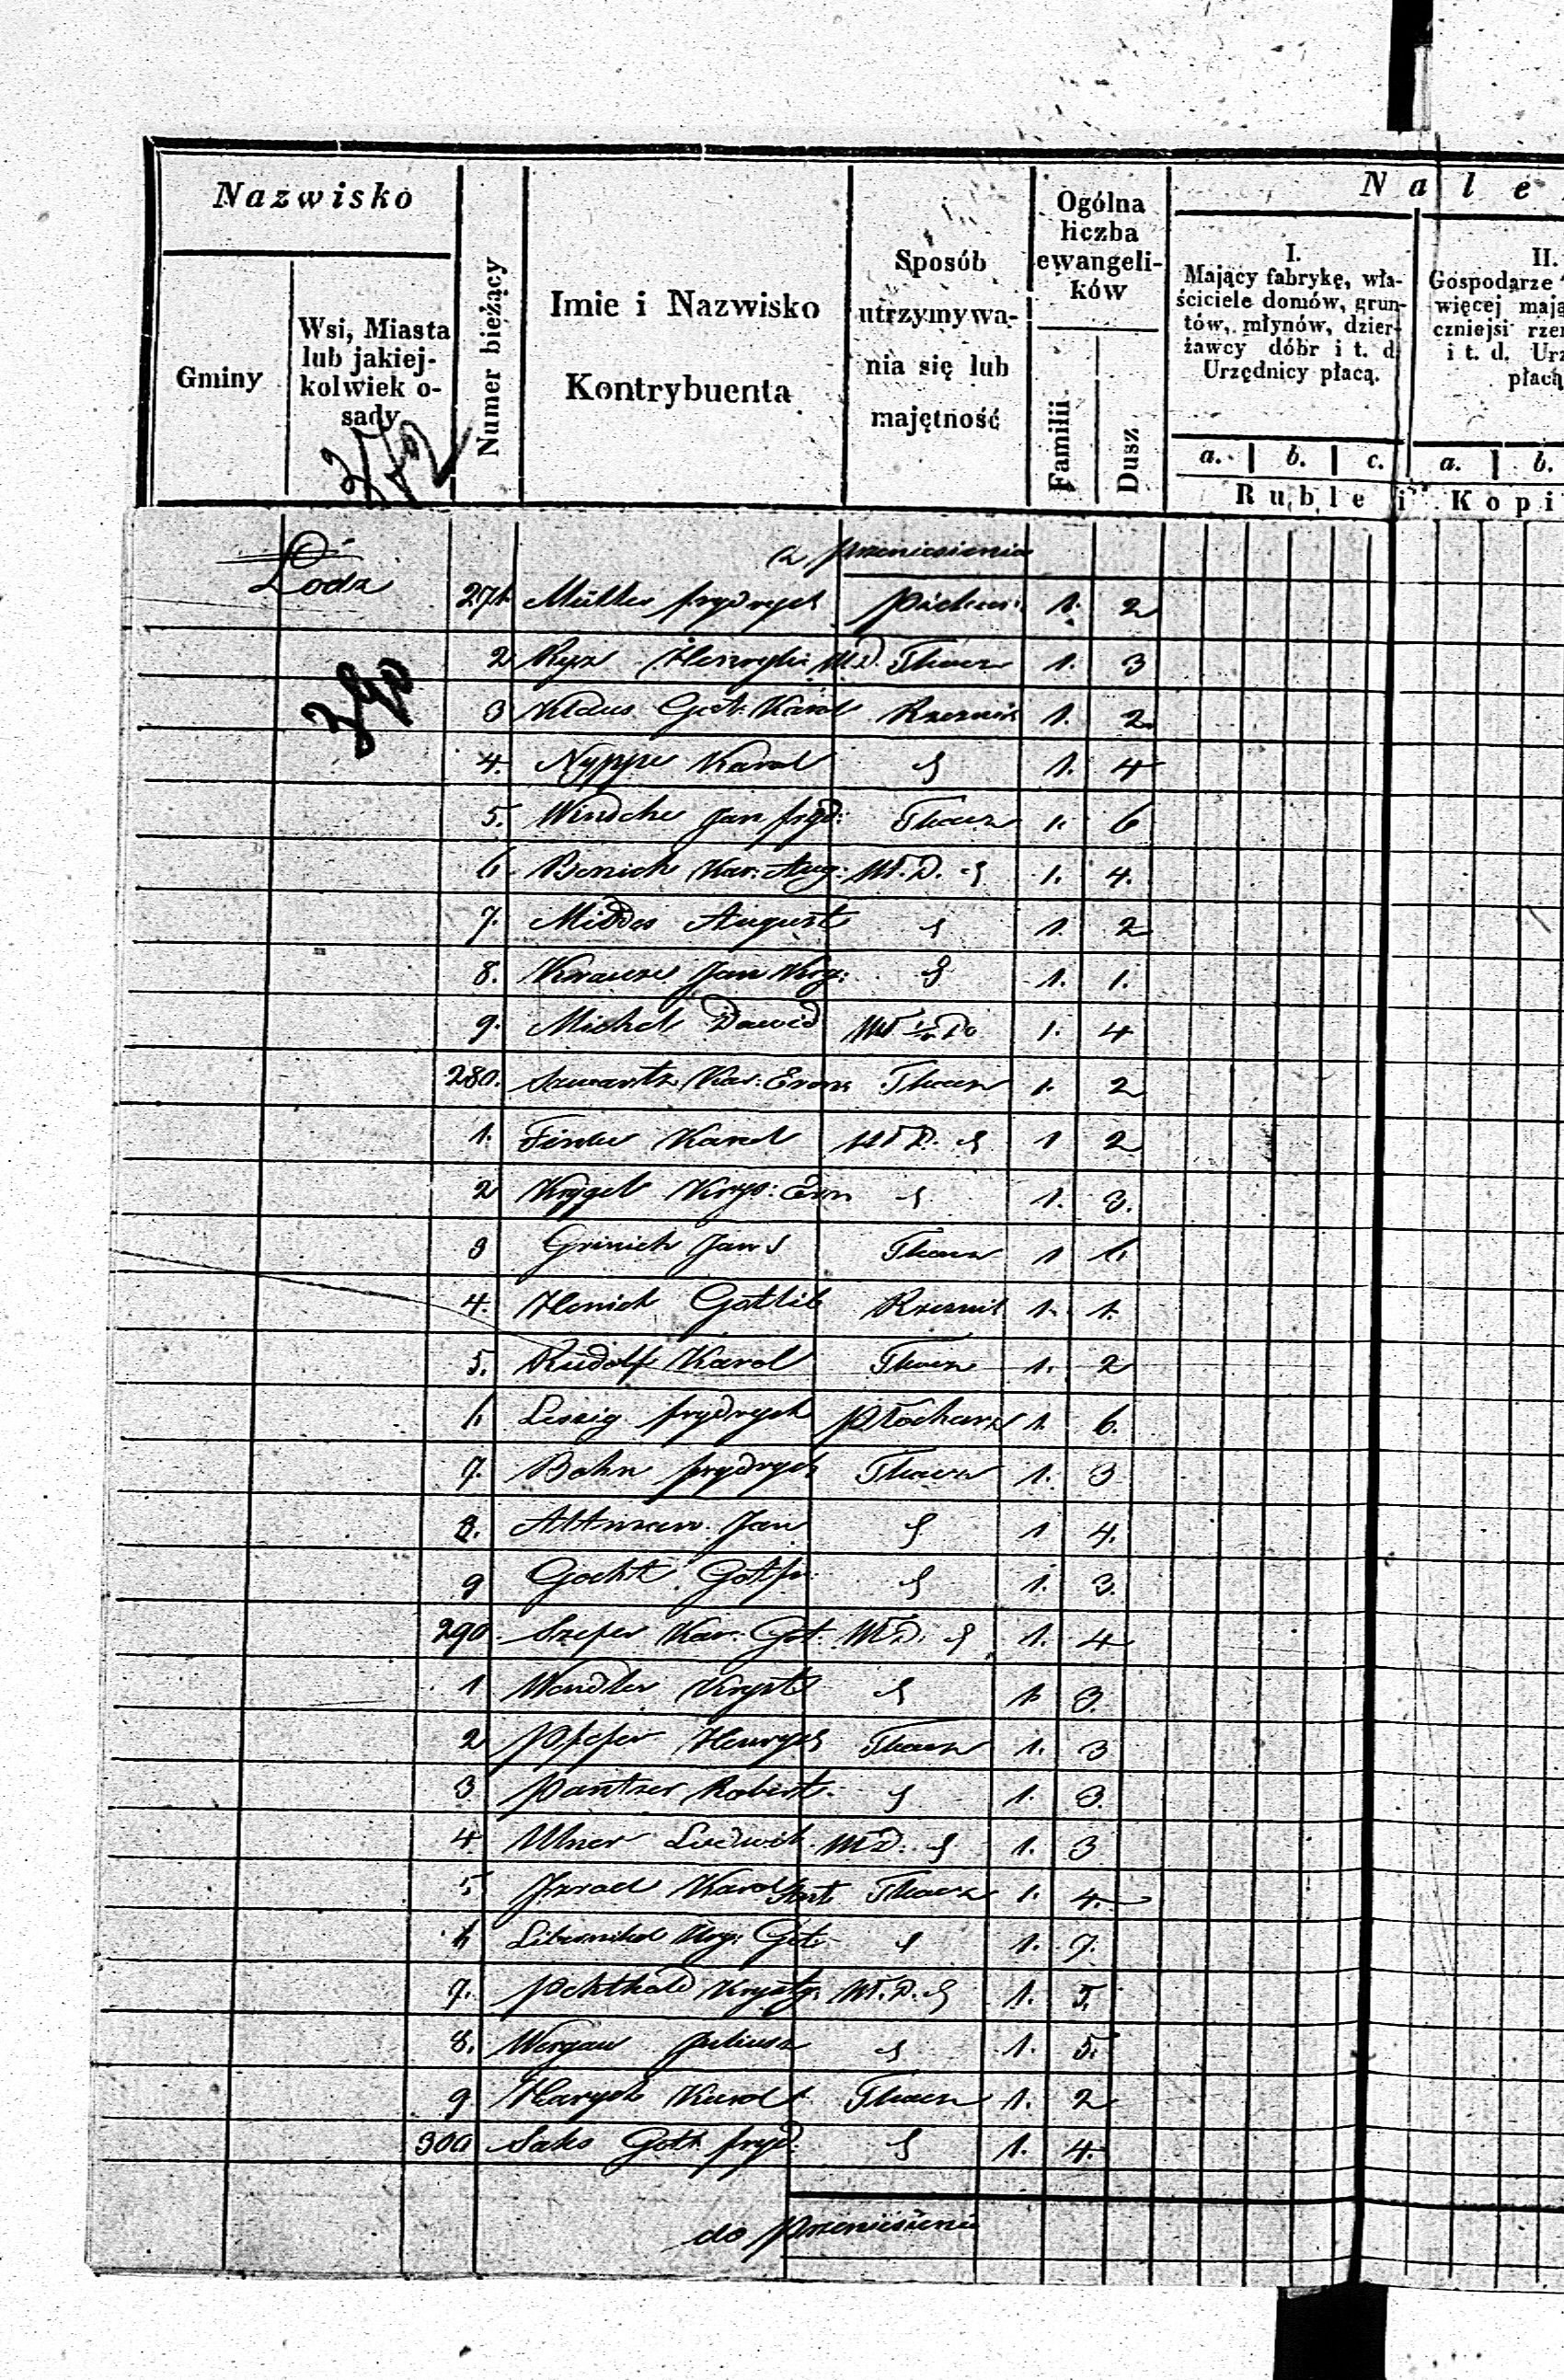 Nazwisko
Gminy
Wsi, Miasta
lub jakiej-
kolwiek o-
sady
Numer bieżący
Imie i Nazwisko
Kontrybuenta
Sposób
utrzymywa-
nia się lub
majętność
Ogólna
liczba
ewangeli-
ków
Familii
Dusz
N a l e
I.
Mający fabrykę, wła-
ściciele domów, grun-
tów, młynów, dzier-
żawcy dóbr i t. d.
Urzędnicy płacą.
II.
Gospodarze
więcej mają
czniejsi rze
i t. d. Urz
płacą
a. b. c. a. b.
Ruble i Kopi
z przeniesienia
Łodz
271. Müller frydrych 1. 2
2 Henryk WD. Tkacz 1. 3
3 Klaus Got. Karol Rzeznik 1. 2.
4. Nyppe Karol 1. 4
5. Windche Jan fryd: Tkacz 1. 6
6. Benich Kar: Aug: W. D. 1. 4.
7. August 1. 2
8. Krauze Jan Kry: 1. 1.
9. Michel Dawid W ½ Do 1. 4
280. Szwartz Kar: Ern Tkacz 1. 2
1. Karol WD. 1 2
2 Krygel Krys: Ern 1. 3.
3 Grinich Jan Tkacz 1 6.
4. Henich Gotlib Rzeznik 1. 1.
5. Rudolf Karol Tkacz 1. 2
6 Lessig frydrych Płocharz 1. 6.
7. Bohn frydrych Tkacz 1. 3
8. Altman Jan 1 4.
9 Gockt Gotfr: 1. 3.
290. Szefer Kar: Got. WD. 1. 4
1 Wendler Kryst 1. 3.
2 Pfefer Henrych Tkacz 1. 3
3 Pantzer Robert 1. 3.
4. Ulner Ludwik WD. 1. 3
5 Izrael Karol Tkacz 1. 4.
6 Kry: Got. 1. 7.
7. W. D. 1. 5.
8. Wergau Juliusz 1. 5.
9 Harych Karol Tkacz 1. 2
300 Saks Gott fryd. 1. 4.
do przeniesienia